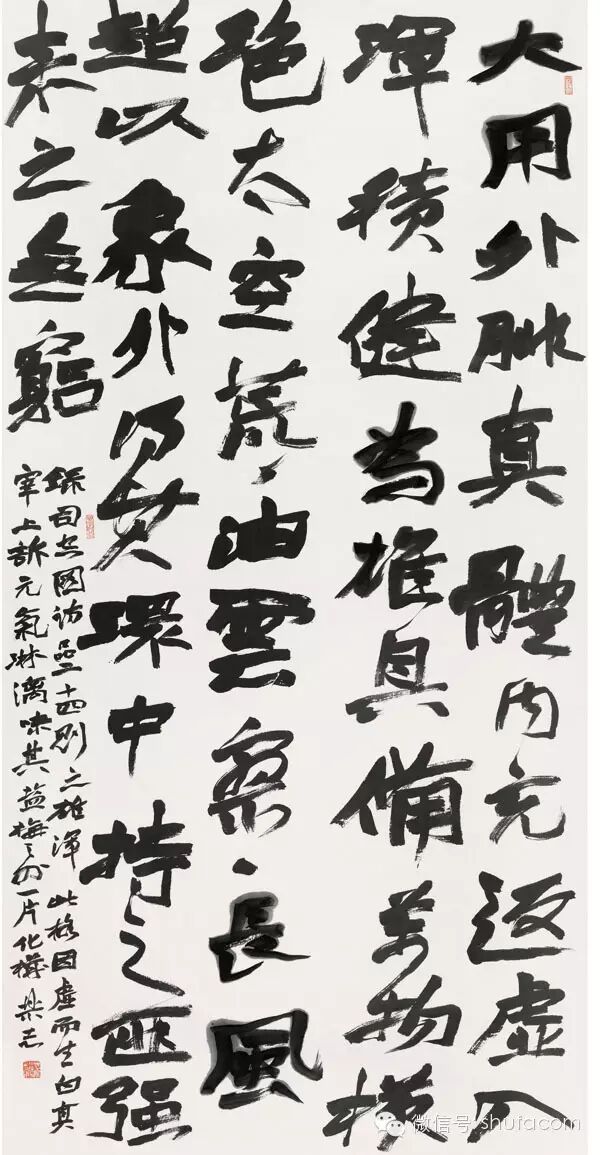 大用外腓真體内充返虛入
渾積健為雄具備萬物橫
絶太空荒々油雲寥々長風
超以象外得其環中持之匪强
来之無窮
録司空圖詩品二十四則之雄渾 此格因虛而生白真
宰上訴元氣淋漓味其盐梅之外一片化機
微信号: shufacom